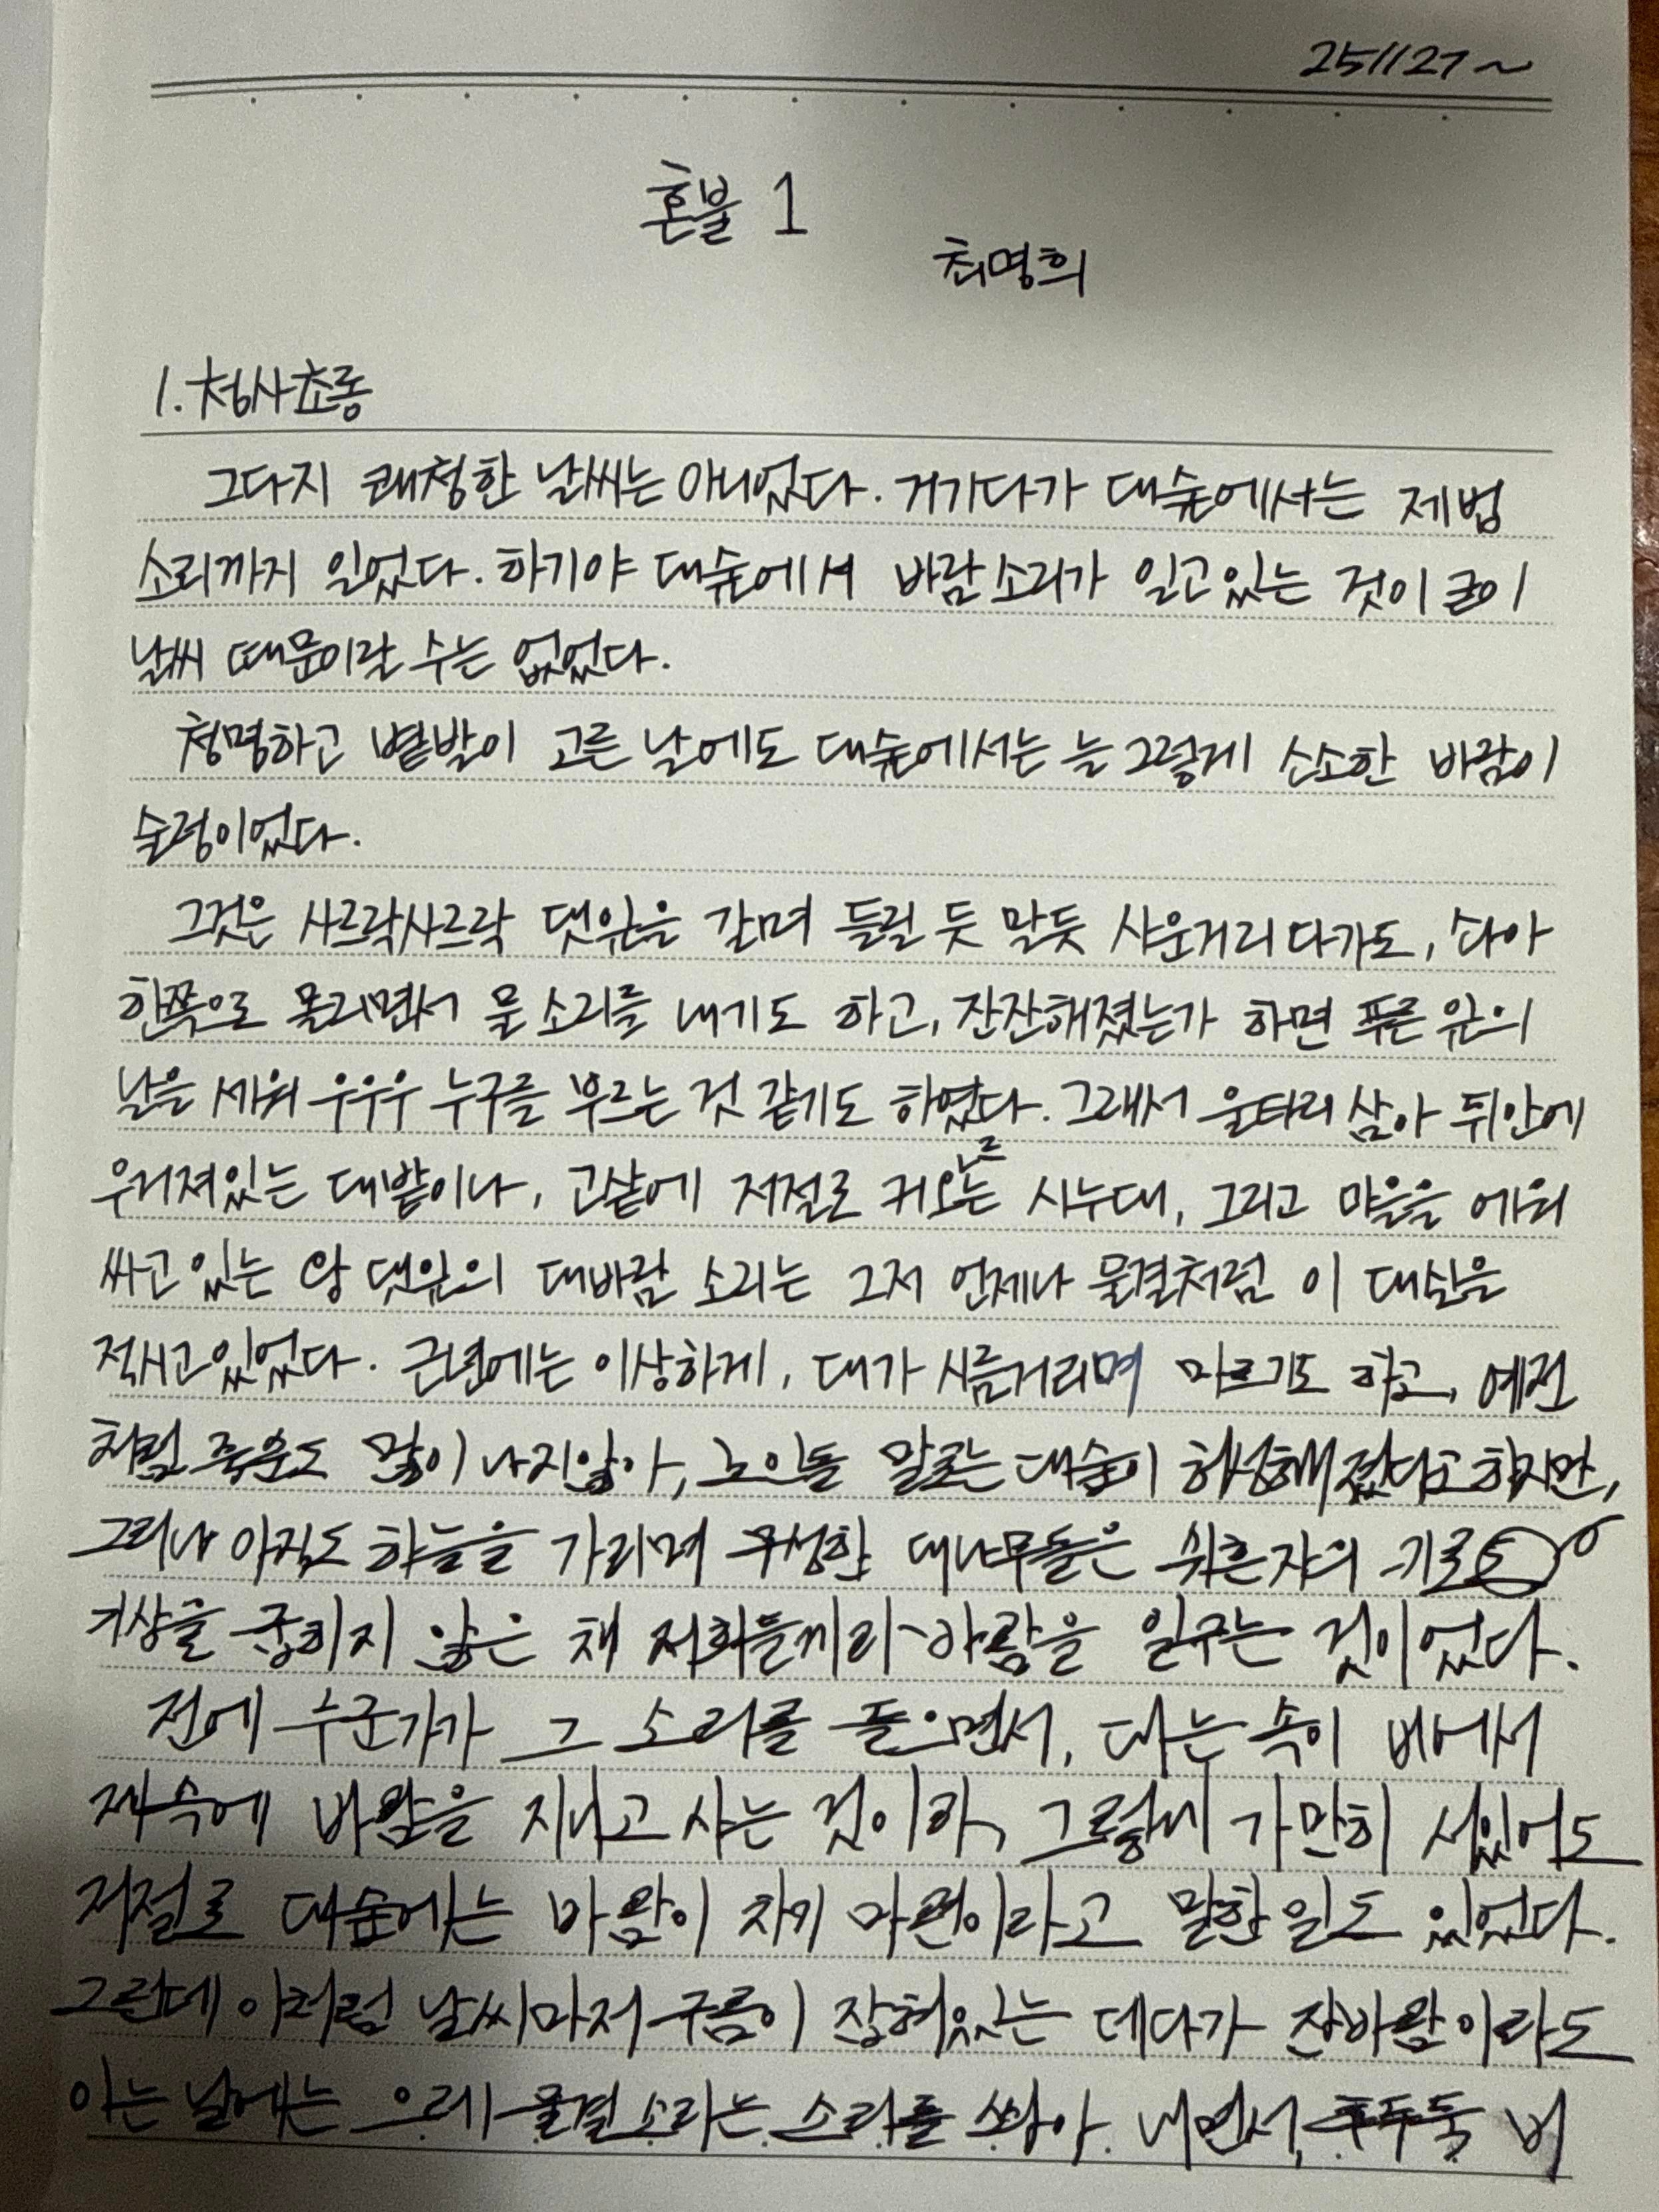 251127~
혼불 1
최명희
1. 청사초롱
그다지 쾌청한 날씨는 아니었다. 거기다가 대숲에서는 제법
소리까지 일었다. 하기야 대숲에서 바람소리가 일고있는 것이 굳이
날씨 때문이랄 수는 없었다.
청명하고 볕발이 고른 날에도 대숲에서는 늘 그렇게 소소한 바람이
술렁이었다.
그것은 사르락사르락 댓잎을 갈며 들릴 듯 말듯 사운거리다가도, 솨아
한쪽으로 몰리면서 물 소리를 내기도 하고, 잔잔해졌는가 하면 푸른 잎의
날을 세워 우우우 누구를 부르는 것 같기도 하였다. 그래서 울타리 삼아 뒤안에
우거져있는 대밭이나, 고샅에 저절로 커오르는 시누대, 그리고 마을을 에워
싸고 있는 왕 댓잎의 대바람 소리는 그저 언제나 물결처럼 이 대실을
적시고 있었다. 근년에는 이상하게, 대가 시름거리며 마르기도 하고, 예전
처럼 죽순도 많이 나지않아, 노인들 말로는 대숲이 허성해졌다고 하지만,
그러나 아직도 하늘을 가리며 무성한 대나무들은 쉬흔자의 키로
기상을 굽히지 않은 채 저희들끼리 바람을 일구는 것이었다.
전에 누군가가 그 소리를 들으면서, 대는 속이 비어서
제속에 바람을 지니고 사는 것이라, 그렇게 가만히 서있어도
저절로 대숲에는 바람이 차기 마련이라고 말한 일도 있었다.
그런데 이처럼 날씨마저 구름이 잡혀있는 데다가 잔바람이라도
이는 날에는 으레 물결 소리는 소리를 쏴아 내면서, 후두둑 비